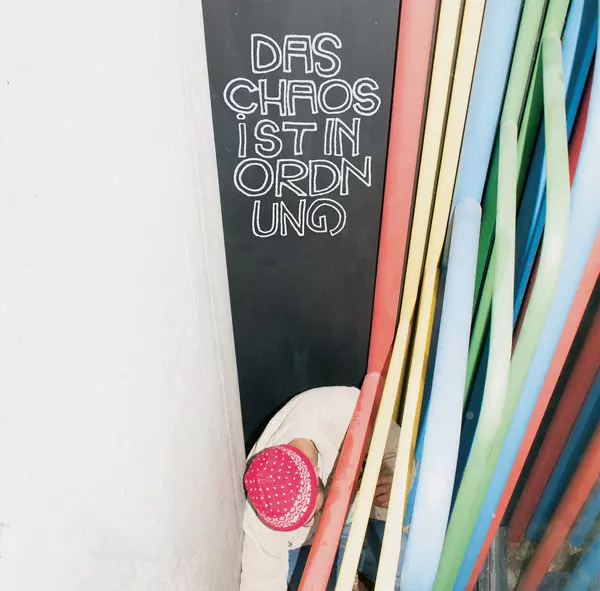 DAS
CHAOS
iST IN
ORDN
UNG